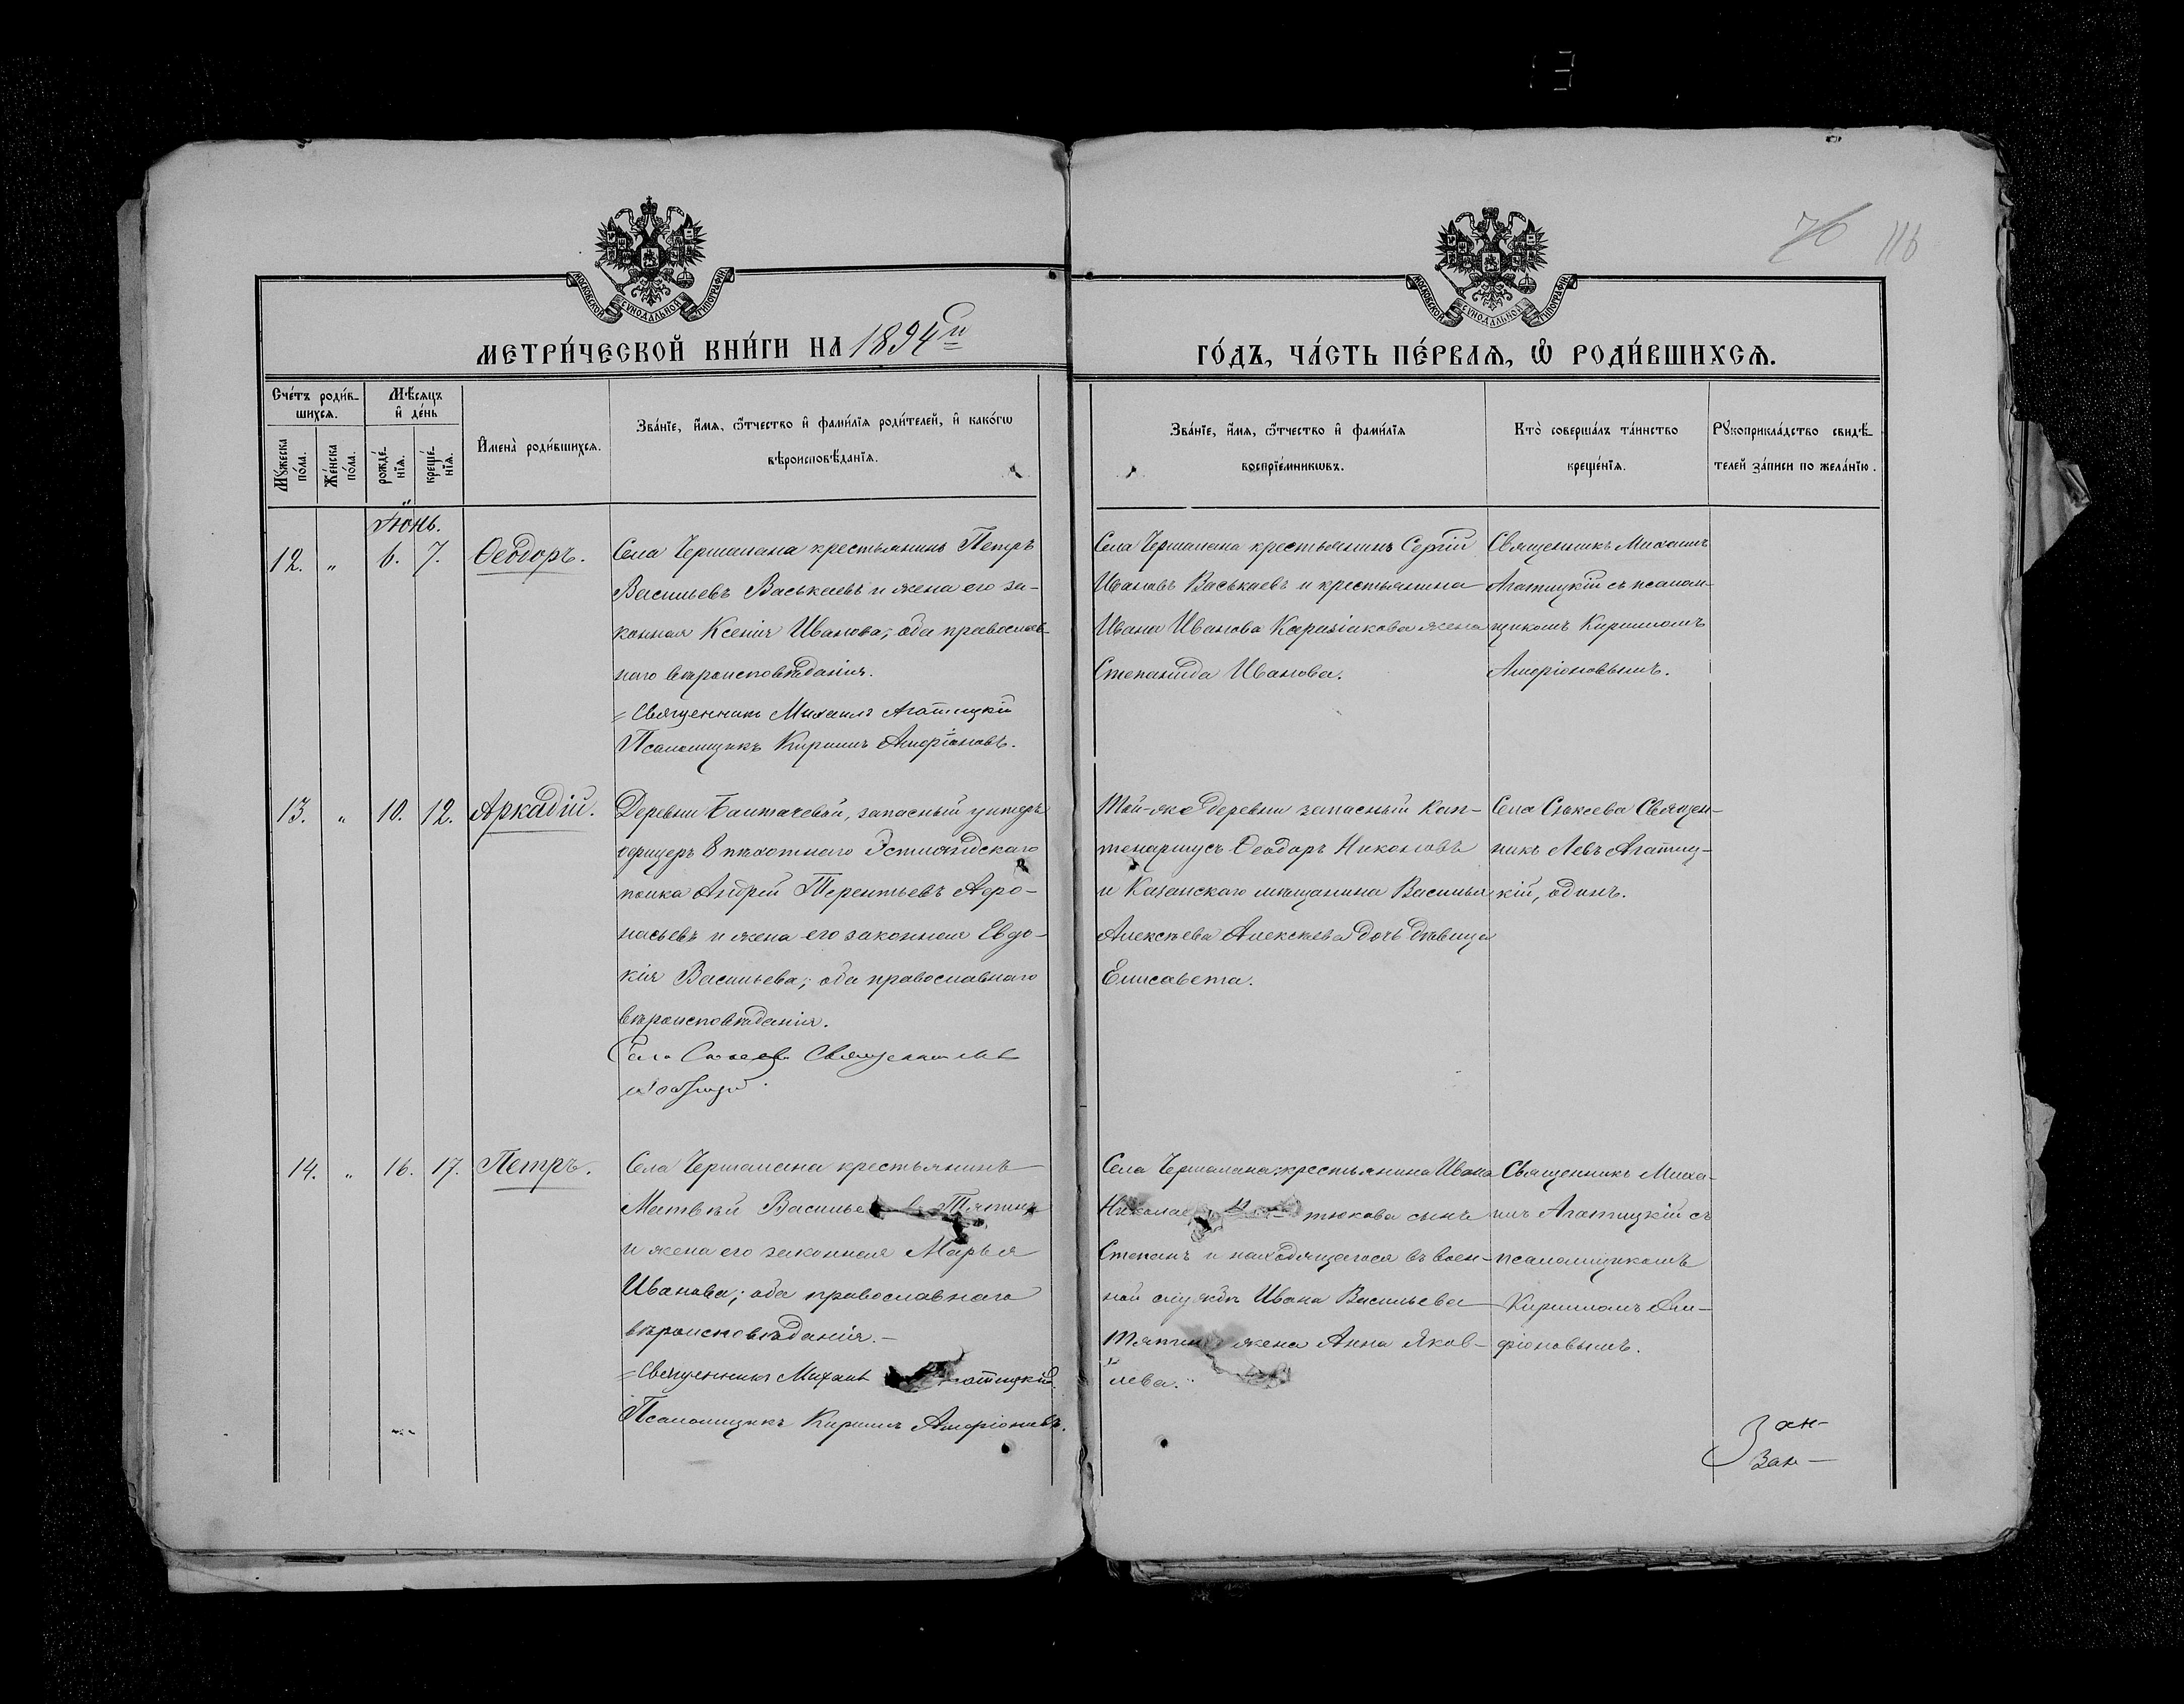 76 116
МОСКОВСКОЙ СѴНОДАЛЬНОЙ ТИПОГРАФІИ
МОСКОВСКОЙ СѴНОДАЛЬНОЙ ТИПОГРАФІИ
МЕТРИ́ЧЕСКОЙ КНИ́ГИ НА 1894й
ГО́ДЪ, ЧА́СТЬ ПЕ́РВАѦ, Ѡ РОДИ́ВШИХСѦ.
Сче́тъ роди́в-
шихсѧ.
Мꙋ́жеска
по́ла.
Же́нска
по́ла.
Мѣ́сѧцъ
и҆ де́нь
рожде́-
нїѧ.
креще́-
нїѧ.
И҆мена̀ роди́вшихсѧ.
Зва́нїе, и҆́мѧ, ѻ҆́тчество и҆ фами́лїѧ роди́телей, и҆ како́гѡ
вѣроисповѣ́данїѧ.
Зва́нїе, и҆́мѧ, ѻ҆́тчество и҆ фами́лїѧ
воспрїе́мникѡвъ.
Кто̀ соверша́лъ та́инство
креще́нїѧ.
Рꙋкоприкла́дство свидѣ́-
телей за́писи по жела́нїю.
Іюнь.
12. " 6. 7. Ѳеодоръ.
Села Чершилана крестьянинъ Петръ
Васильевъ Васькаевъ и жена его за-
конная Ксенія Иванова; оба православ-
наго вѣроисповѣданія.
Священникъ Михаилъ Агатицкій
Псаломщикъ Кириллъ Амфіоновъ.
Села Чершилана крестьянинъ Сергій
Ивановъ Васькаевъ и крестьянина
Ивана Иванова жена
Степанида Иванова.
Священникъ Михаилъ
Агатицкій съ псалом-
щикомъ Кирилломъ
Амфіоновымъ.
13. " 10. 12. Аркадій.
Деревни запасный унтеръ
офицеръ 8 пѣхотнаго Эстляндскаго
полка Андрей Терентьевъ Афо-
насьевъ и жена его законная Евдо-
кія Васильева; оба православнаго
вѣроисповѣданія.
Села Сюкеева Священникъ Левъ
Агатицкій.
Той-же деревни запасный Кап-
тенармусъ Ѳеодоръ Николаевъ
и Казанскаго мѣщанина Василья
Алексѣева Алексѣева дочь дѣвица
Елисавета.
Села Сюкеева Священ-
никъ Левъ Агатиц-
кій, одинъ.
14. " 16. 17. Петръ.
Села Чершилана крестьянинъ
Матвѣй Василье
и жена его законная Марья
Иванова; оба православнаго
вѣроисповѣданія.
Священникъ Михаилъ Агатицкій.
Псаломщикъ Кириллъ Амфіоновъ.
Села Чершилана крестьянина Ивана
Николае тюкова сынъ
Степанъ и находящагося въ воен-
ной службѣ Ивана Васильева
жена Анна Яков-
лева.
Священникъ Миха-
илъ Агатицкій съ
псаломщикомъ
Кирилломъ Ам-
фіоновымъ.